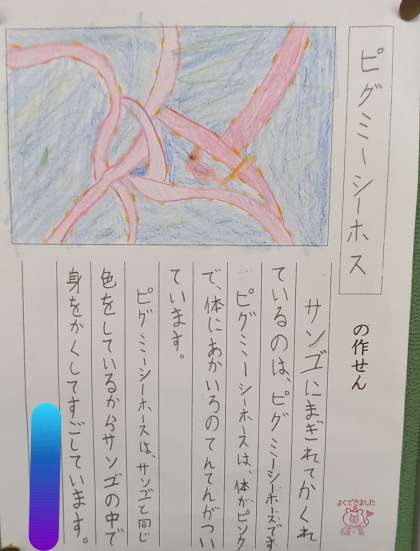 ピグミーシーホス
の作せん
サンゴにまぎれてかくれ
ているのは、ピグミーシーホースです
ピグミーシーホースは、体がピンク
で、体にあかいろのてんてんがつい
ています。
ピグミーシーホースは、サンゴと同じ
色をしているからサンゴの中で
身をかくしてすごしています。
よくできました